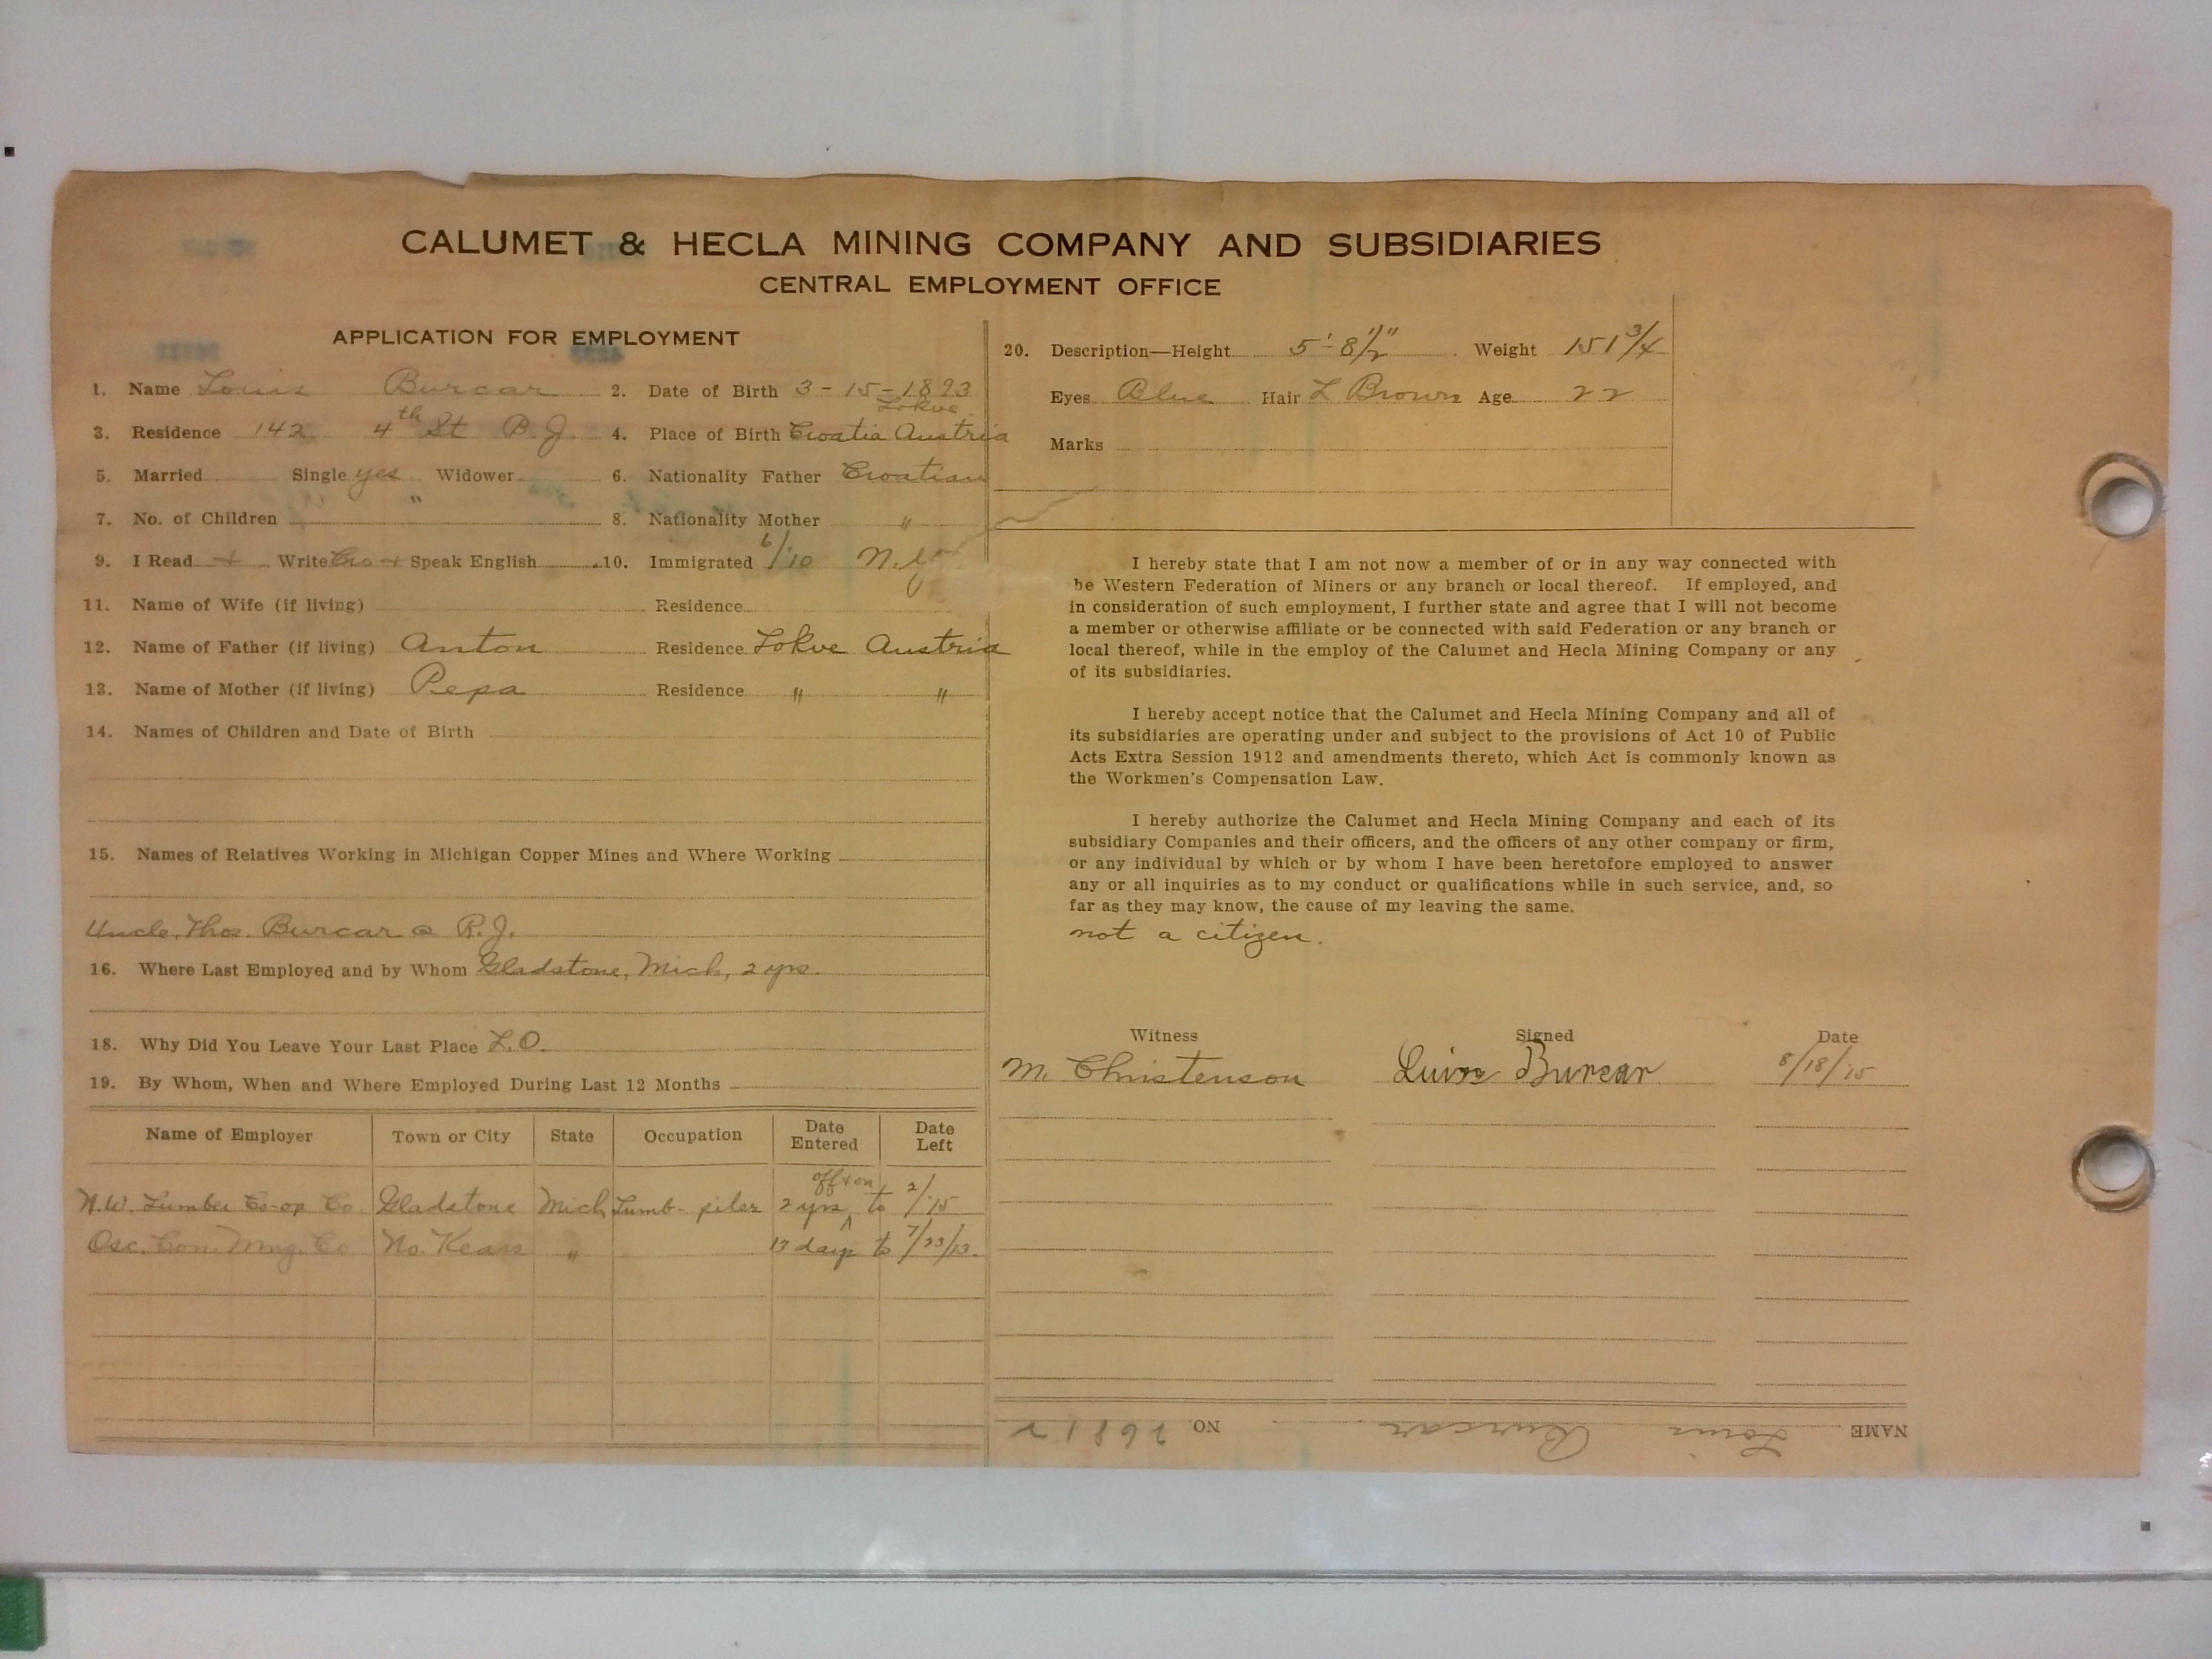 CALUMET & HECLA MINING COMPANY AND SUBSIDIARIES
CENTRAL EMPLOYMENT OFFICE
APPLICATION FOR EMPLOYMENT
1. Name Louis Burcar 2. Date of Birth 3-15-1893
Lokve
3. Residence 142 4th St R.J. 4. Place of Birth Croatia Austria
5. Married Single yes Widower 6. Nationality Father Croatian
7. No. of Children " 8. Nationality Mother "
9. I Read + Write Cro + Speak English 10. Immigrated 6/'10 N.Y.
11. Name of Wife (if living) Residence
12. Name of Father (if living) Anton Residence Lokve Austria
13. Name of Mother (if living) Pepa Residence " "
14. Names of Children and Date of Birth
15. Names of Relatives Working in Michigan Copper Mines and Where Working
Uncle, Thos. Burcar @ R.J.
16. Where Last Employed and by Whom Gladstone, Mich, 2 yrs.
18. Why Did You Leave Your Last Place L.O.
19. By Whom, When and Where Employed During Last 12 Months
Name of Employer Town or City State Occupation Date Entered Date Left
off + on
N.W. Lumber Co-op Co. Gladstone Mich Lumb-piler 2 yrs ^ to 2/'15
Osc. Con. Mng. Co No. Kears " days to 7/23/13.
20. Description—Height 5'-8 1/2" Weight 151 3/4
Eyes Blue Hair L Brown Age 22
Marks
I hereby state that I am not now a member of or in any way connected with
he Western Federation of Miners or any branch or local thereof. If employed, and
in consideration of such employment, I further state and agree that I will not become
a member or otherwise affiliate or be connected with said Federation or any branch or
local thereof, while in the employ of the Calumet and Hecla Mining Company or any
of its subsidiaries.
I hereby accept notice that the Calumet and Hecla Mining Company and all of
its subsidiaries are operating under and subject to the provisions of Act 10 of Public
Acts Extra Session 1912 and amendments thereto, which Act is commonly known as
the Workmen's Compensation Law.
I hereby authorize the Calumet and Hecla Mining Company and each of its
subsidiary Companies and their officers, and the officers of any other company or firm,
or any individual by which or by whom I have been heretofore employed to answer
any or all inquiries as to my conduct or qualifications while in such service, and, so
far as they may know, the cause of my leaving the same.
not a citizen.
Witness Signed Date
M. Christenson Burcar 8/18/15
NAME Louis Burcar NO. 26812